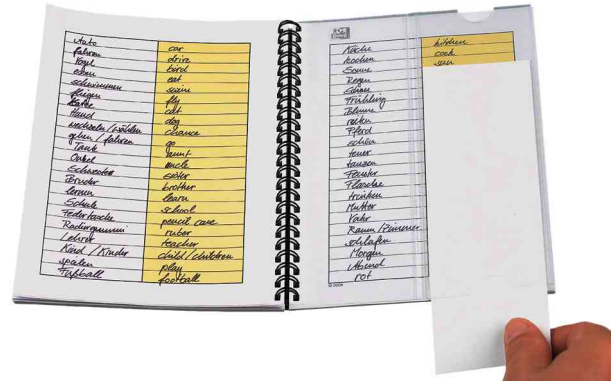 Auto car
fahren drive
Vogel bird
essen eat
schwimmen swim
fliegen fly
Katze cat
Hand dog
wechseln / wählen chance
gehen / fahren go
Tante aunt
Onkel uncle
Schwester sister
Bruder brother
lernen learn
Schule school
Federtasche pencil case
Radiergummi ruber
Lehrer teacher
Kind / Kinder child / children
spielen play
Fußball football
Küche kitchen
kochen cook
Sonne sun
Regen
Frühling
Blume
reiten
Pferd
schön
teuer
tanzen
Fenster
Flasche
trinken
Mutter
Vater
Raum / Zimmer
schlafen
Morgen
Abend
rot